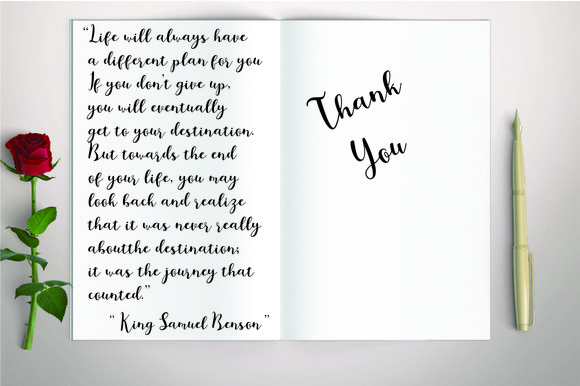 “Life will always have
a different plan for you
If you don't give up,
you will eventually
get to your destination.
But towards the end
of your life, you may
look back and realize
that it was never really
aboutthe destination;
it was the journey that
counted.”
“ King Samuel Benson ”
Thank
You